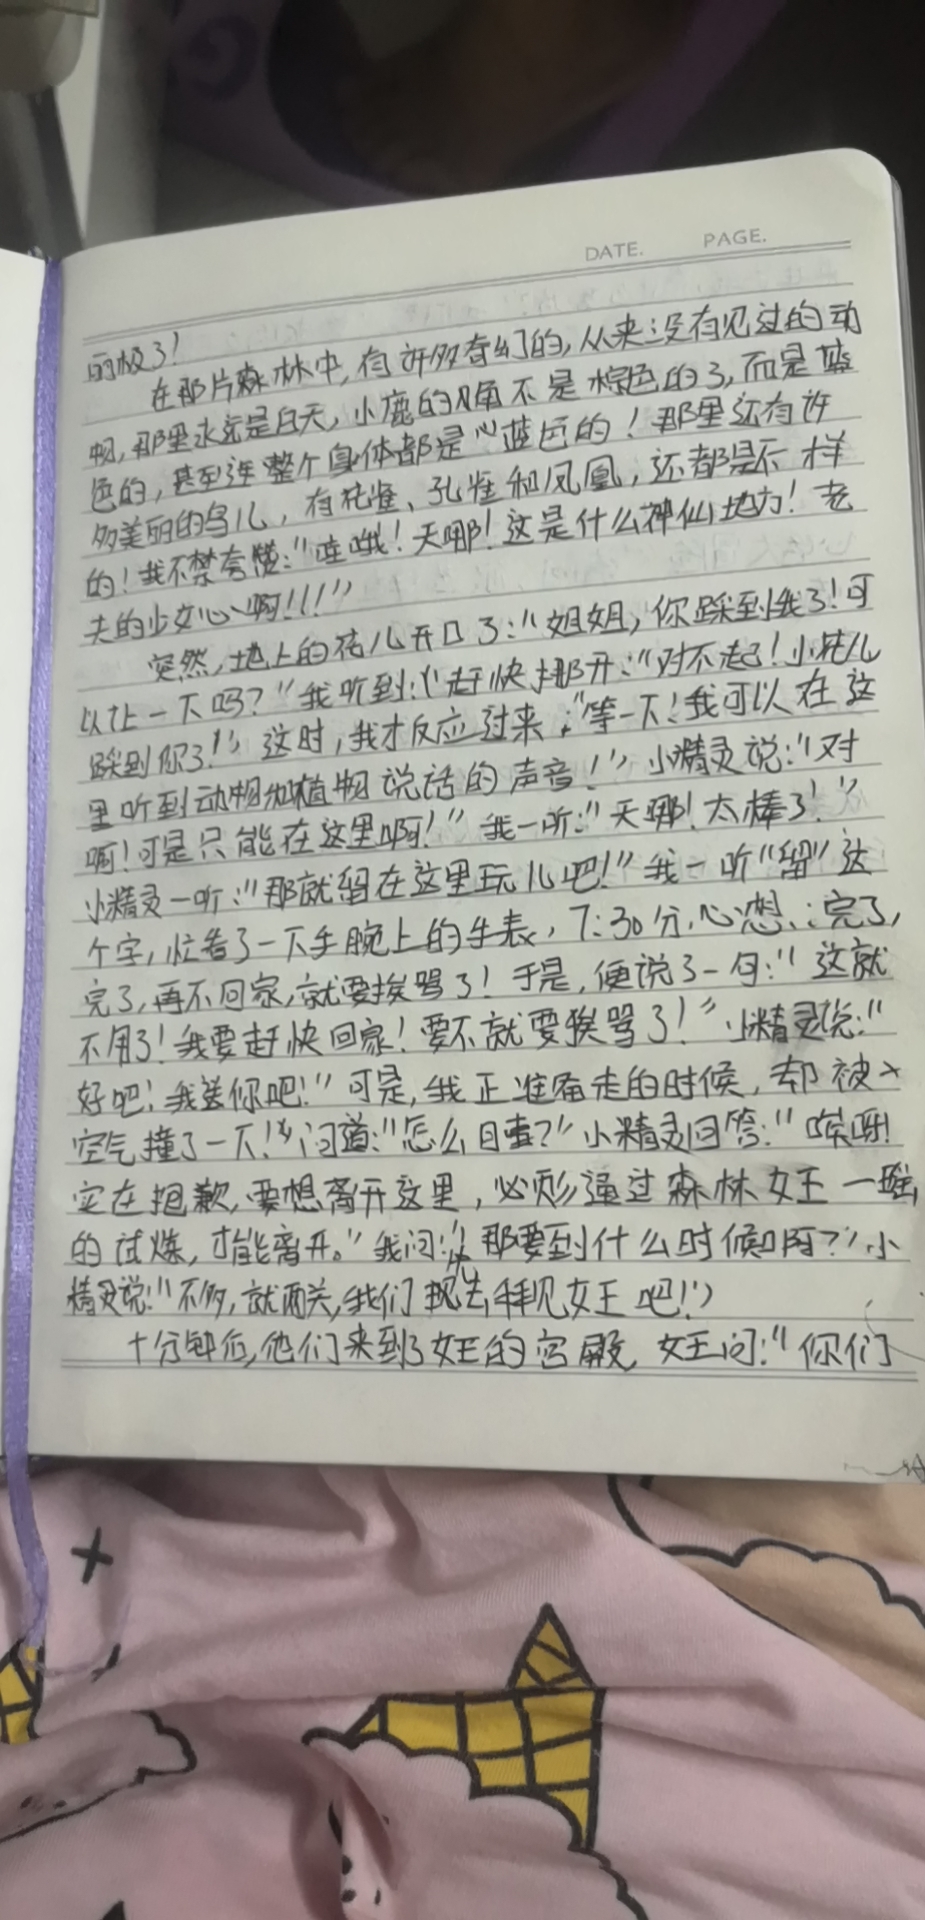 DATE. PAGE.
丽极了!
在那片森林中,有许多奇幻的,从来没有见过的动
物,那里永远是白天,小鹿的角不是棕色的了,而是蓝
色的,甚至连整个身体都是蓝色的!那里还有许
多美丽的鸟儿,有花雀、孔雀和凤凰,还都是不一样
的!我不禁夸赞:“哇哦!天哪!这是什么神仙地方!老
夫的少女心啊!!!”
突然,地上的花儿开口了:“姐姐,你踩到我了!可
以让一下吗?”我听到:赶快挪开:“对不起!小花儿
踩到你了!”这时,我才反应过来:“等一下!我可以在这
里听到动物和植物说话的声音!”小精灵说:“对
啊!可是只能在这里啊!”我一听:“天哪!太棒了!”
小精灵一听:“那就留在这里玩儿吧!”我一听“留”这
个字,忙看了一下手腕上的手表,7:30分,心想:完了,
完了,再不回家,就要挨骂了!于是,便说了一句:“这就
不用了!我要赶快回家!要不就要挨骂了!”小精灵说:“
好吧!我送你吧!”可是,我正准备走的时候,却被
空气撞了一下!问道:“怎么回事?”小精灵回答:“哎呀!
实在抱歉,要想离开这里,必须通过森林女王
的试炼,才能离开。”我问:“那要到什么时候啊?”小
精灵说:“不多,就两关,我们现去拜见女王吧!”
十分钟后,他们来到了女王的宫殿,女王问:“你们